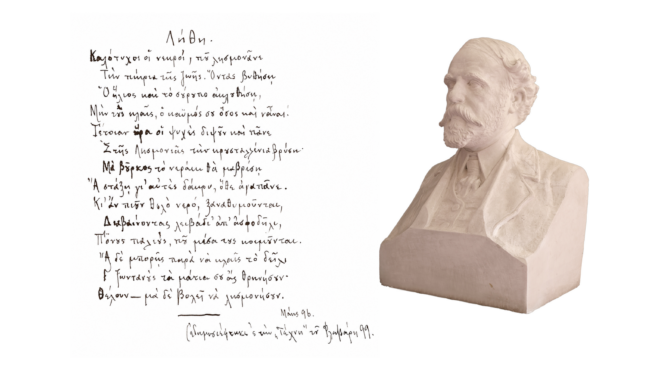 Λήθη.
Καλότυχοι οἱ νεκροί, ποῦ λησμονᾶνε
Τὴν πίκρια τῆς ζωῆς. Ὄντας βυθήσῃ
Ὁ ἥλιος καὶ τὸ σούρουπο ἀκλουθήσῃ,
Μὴν τοὺς κλαῖς, ὁ καϋμός σου ὅσος καὶ νἆναι.
Τέτοιαν ὥρα οἱ ψυχὲς διψοῦν καὶ πᾶνε
Στῆς Λησμονιᾶς τὴν κρουσταλλένια βρύση·
Μὰ βοῦρκος τὸ νεράκι θὰ μαβρίσῃ
Ἂ στάξῃ γι' αὐτὲς δάκρυ, ὅθε ἀγαπᾶνε.
Κι' ἂν πιοῦν θολὸ νερό, ξαναθυμοῦνται,
Διαβαίνοντας λιβάδι' ἀπ' ἀσφοδήλι,
Πόνους παλιούς, ποῦ μέσα τους κοιμοῦνται.
Ἂ δὲ μπορῇς παρὰ νὰ κλαῖς τὸ δεῖλι
Τοὺς ζωντανοὺς τὰ μάτια σου ἂς θρηνήσουν·
Θέλουν — μὰ δὲ βολεῖ νὰ λησμονήσουν.
Μάης 96.
ἐδημοσιέφτηκε 'ς τὴν "Τέχνη" τοῦ Φλεβάρη 99.